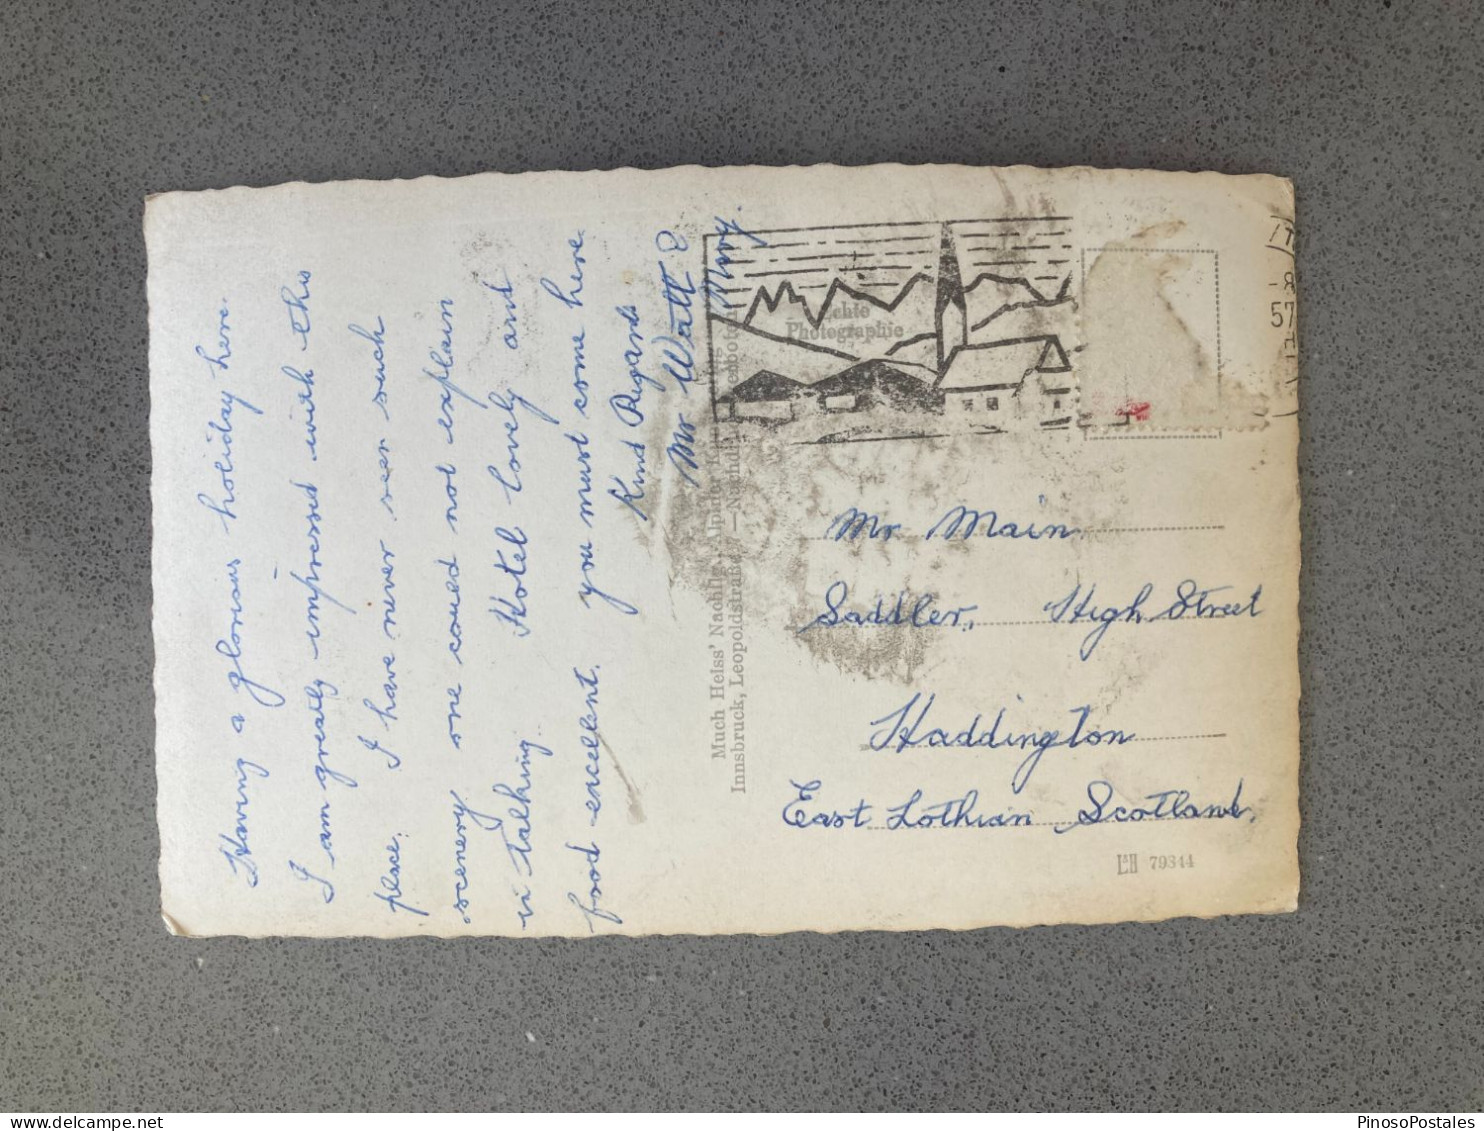 Having a glorious holiday here.
I am greatly impressed with this
place. I have never seen such
scenery one could not explain
in talking. Hotel lovely and
food excellent. you must come here
Kind Regards
Mr Watt &
Mary.
Much Heiss' Nachflg., Alpiner
Innsbruck, Leopoldstraße — Nachdruck
Echte
Photographie
57
Mr Main
Saddler, High Street
Haddington
East Lothian Scotland.
79344
delcampe.net
PinosoPostales